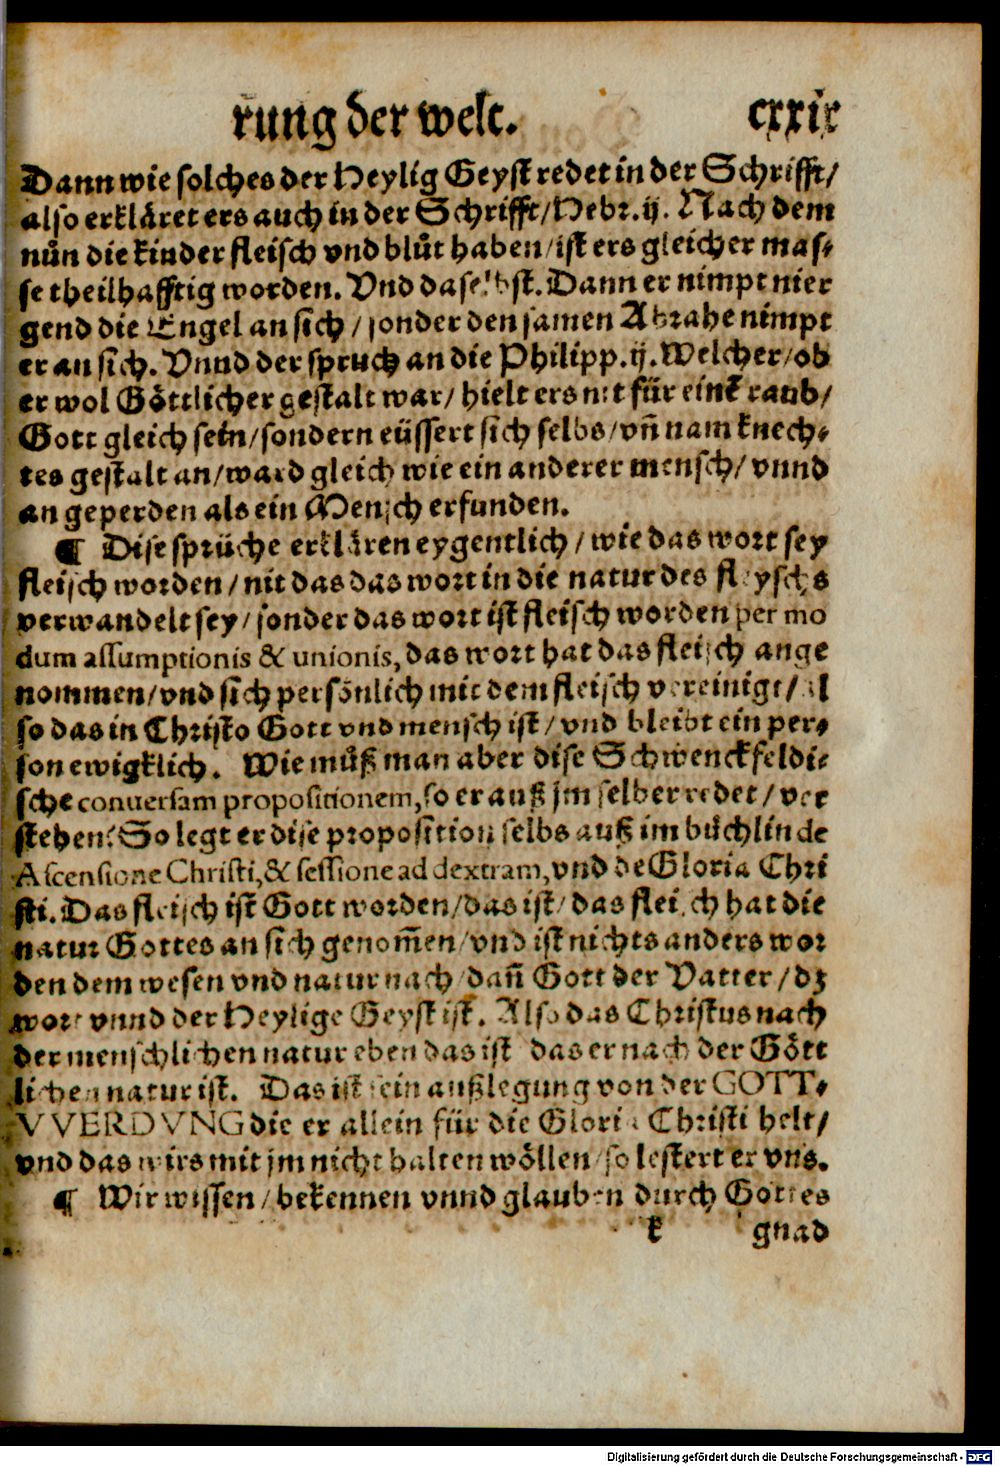 rung der welt. cxxix
Dann wie solches der Heylig Geyst redet in der Schrifft/
also erkläret ers auch in der Schrifft/Hebr.ij. Nach dem
nůn die kinder fleisch vnd blůt haben/ist ers gleicher mas⸗
se theilhafftig worden. Vnd daselbst. Dann er nimpt nier
gend die Engel an sich/sonder den samen Abrahe nimpt
er an sich. Vnnd der spruch an die Philipp.ij. Welcher/ob
er wol Göttlicher gestalt war/hielt ers nit für eink raub/
Gott gleich sein/sondern eüssert sich selbs/vñ nam knech⸗
tes gestalt an/ward gleich wie ein anderer mensch/vnnd
an geperden als ein Mensch erfunden.
¶ Dise sprüche erklären eygentlich/wie das wort sey
fleisch worden/nit das das wort in die natur des fleysches
verwandelt sey/sonder das wort ist fleisch worden per mo
dum assumptionis & unionis, das wort hat das fleisch ange
nommen/vnd sich persönlich mit dem fleisch vereinigt/al
so das in Christo Gott vnd mensch ist/vnd bleibt ein per⸗
son ewigklich. Wie můß man aber dise Schwenckfeldi⸗
sche conuersam propositionem, so er auß jm selber redet/ver
stehen? So legt er dise proposition selbs auß im bůchlin de
Ascensione Christi, & sessione ad dextram, vnd de Gloria Chri
sti. Das fleisch ist Gott worden/das ist/das fleisch hat die
natur Gottes an sich genom̃en/vnd ist nichts anders wor
den dem wesen vnd natur nach/dañ Gott der Vatter/dz
wort vnnd der Heylige Geyst ist. Also das Christus nach
der menschlichen natur eben das ist das er nach der Gött
lichen natur ist. Das ist sein außlegung von der GOTT⸗
VVERDVNG die er allein für die Gloria Christi helt/
vnd das wirs mit jm nicht halten wöllen/so lestert er vns.
¶ Wir wissen/bekennen vnnd glauben durch Gottes
k gnad
Digitalisierung gefördert durch die Deutsche Forschungsgemeinschaft - DFG